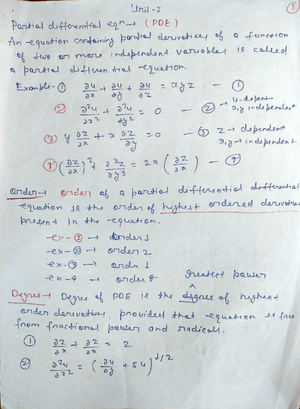 Unit-I
Partial differential eqn → (PDE)
An equation containing partial derivatives of a function
of two or more independent variables is called
a partial differential equation.
Example- ① ∂u/∂x + ∂u/∂y + ∂u/∂z = xyz — ①
② ∂²u/∂x² + ∂²u/∂y² = 0 — ② → u-depent x,y independent
③ y ∂z/∂x + x ∂z/∂y = 0 — ③ z → dependent
x,y → independent.
④ (∂z/∂x)² + ∂³z/∂y³ = 2x (∂z/∂x) — ④
Order → Order of a partial differential differential
equation is the order of highest ordered derivative
present in the equation.
ex-① → order 1
ex-② → order 2
ex-③ → order 1
ex-4 → order
Greatest power
Degree → Degree of PDE is the degree of highest
order derivative, provided that equation is free
from fractional power and radicals.
① ∂z/∂x + ∂z/∂x = 2
② ∂²u/∂x² = (∂u/∂y + 5u)^1/2